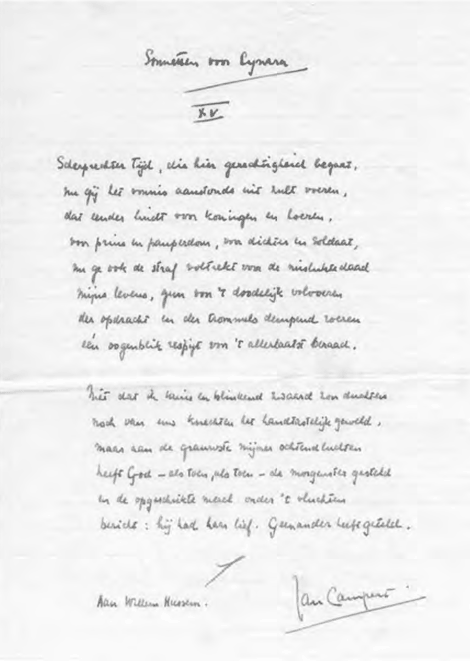 Sonnetten voor Cynara
XV
Scherprechter Tijd, die hier gerechtigheid begaat,
nu gij het vonnis aanstonds uit zult voeren,
dat eender luidt voor koningen en hoeren,
voor prins en pauperdom, voor dichter en soldaat,
nu ge ook de straf voltrekt voor de mislukte daad
mijns levens, gun voor 't doodelijk volvoeren
der opdracht en der trommels dempend roeren
één oogenblik respijt voor 't allerlaatst beraad.
Niet dat ik en blinkend zwaard zou duchten
noch van uw knechten het handtastelijk geweld,
maar aan de grauwste mijner ochtendluchten
heeft God – als toen, als toen – de morgenster gesteld
en de opgeschrikte merel onder 't vluchten
bericht: hij had haar lief. Geen ander heeft geteld.
Aan Willem Hussem.
Jan Campert.